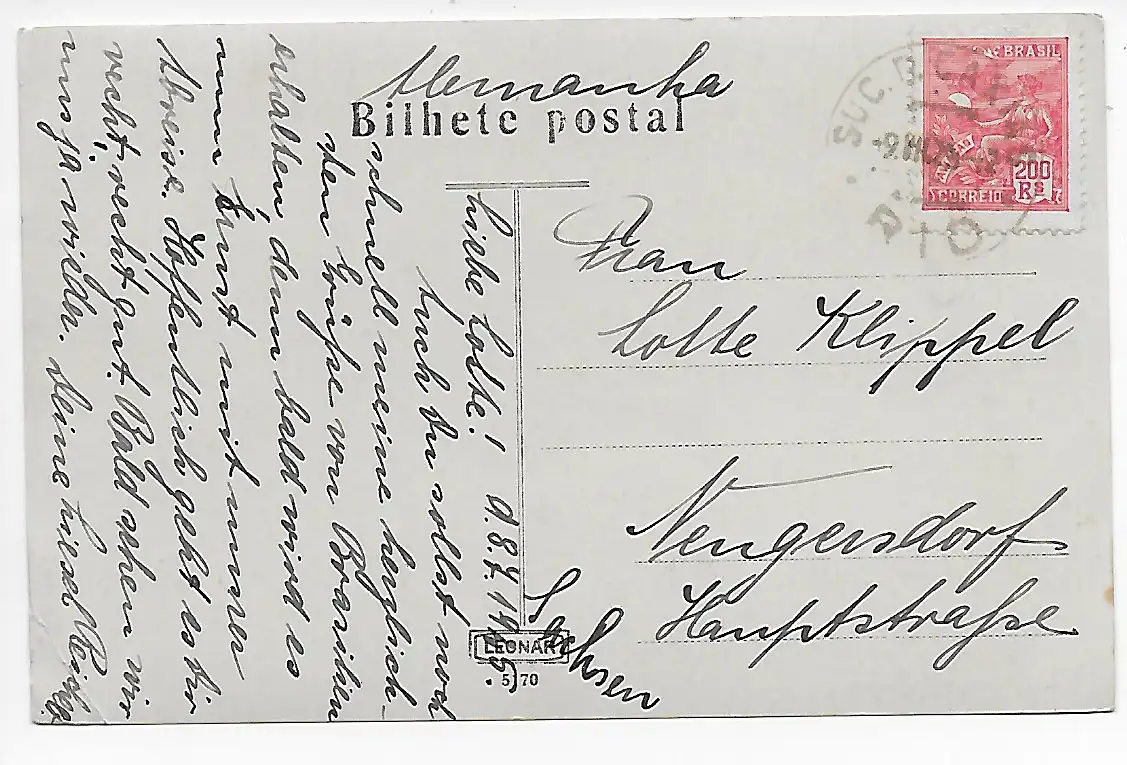 Alemanha
Bilhete postal
BRASIL
AVIAÇÃO
200
Rs
CORREIO
SUC.
RIO
Frau
Lotte Klippel
Neugersdorf
Hauptstraße
Sachsen
LEONAR
5170
Liebe Lotte! 9.8.1935
Auch Du sollst noch
schnell meine herzlich-
sten Grüße von Brasilien
erhalten, denn bald wird es
nun Ernst mit unser
Abreise. Hoffentlich geht es Dir
recht, recht gut. Bald sehen wir
uns ja wieder. Deine Liesel